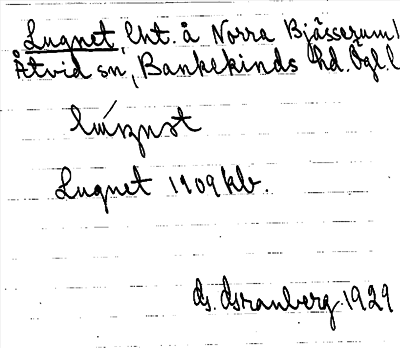 Lugnet, lht. å Norra Bjässerum
Åtvid sn, Bankekinds hd. Ögl.l
Lugnet 1909 kb.
1929